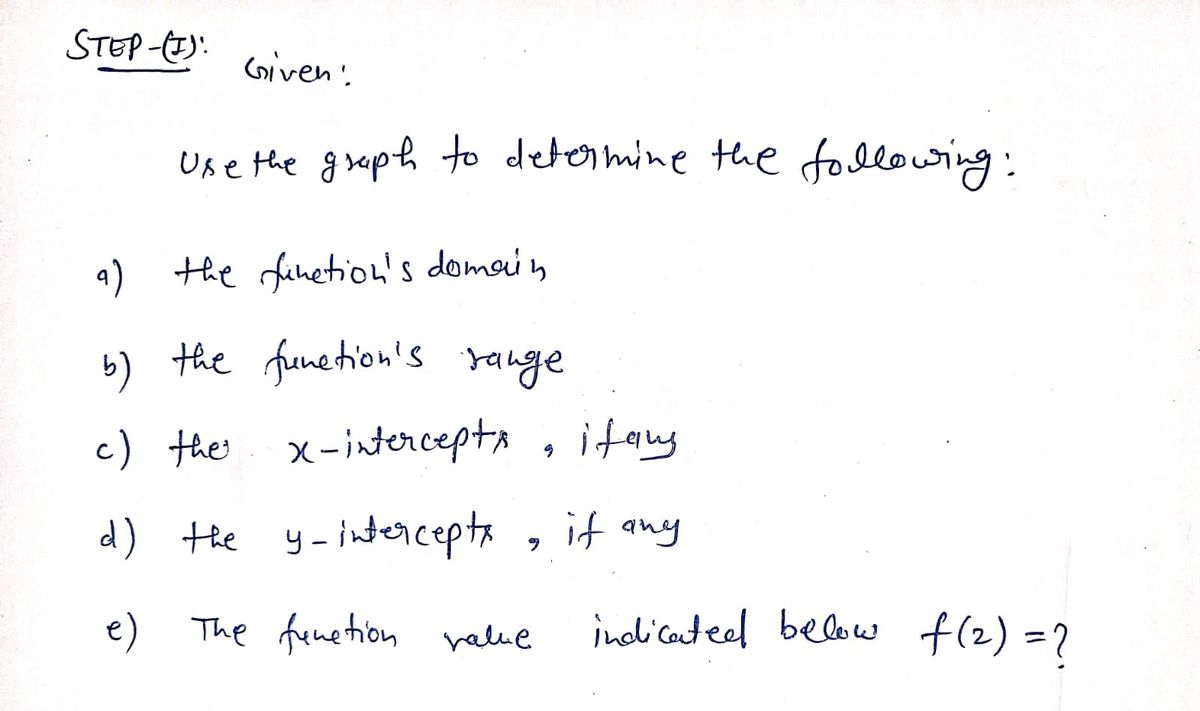 STEP-(I):
Given:
Use the graph to determine the following:
a) the function's domain
b) the function's range
c) the x-intercepts, if any
d) the y-intercepts, if any
e) The function value indicated below f(2) = ?